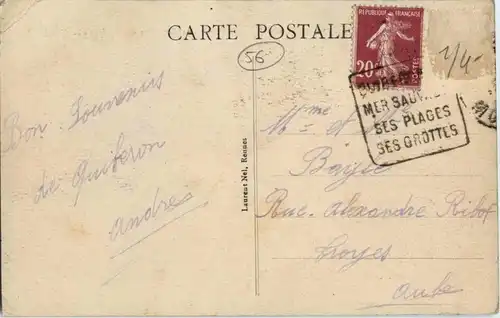 CARTE POSTALE
56
REPUBLIQUE FRANÇAISE
20
POSTES
1/4
MER SAUV
SES PLAGES
SES GROTTES
Bon Souvenirs
de Quiberon
André
Laurent Nel, Rennes
Mme et M
Rue Alexandre Ribot
Troyes
Aube